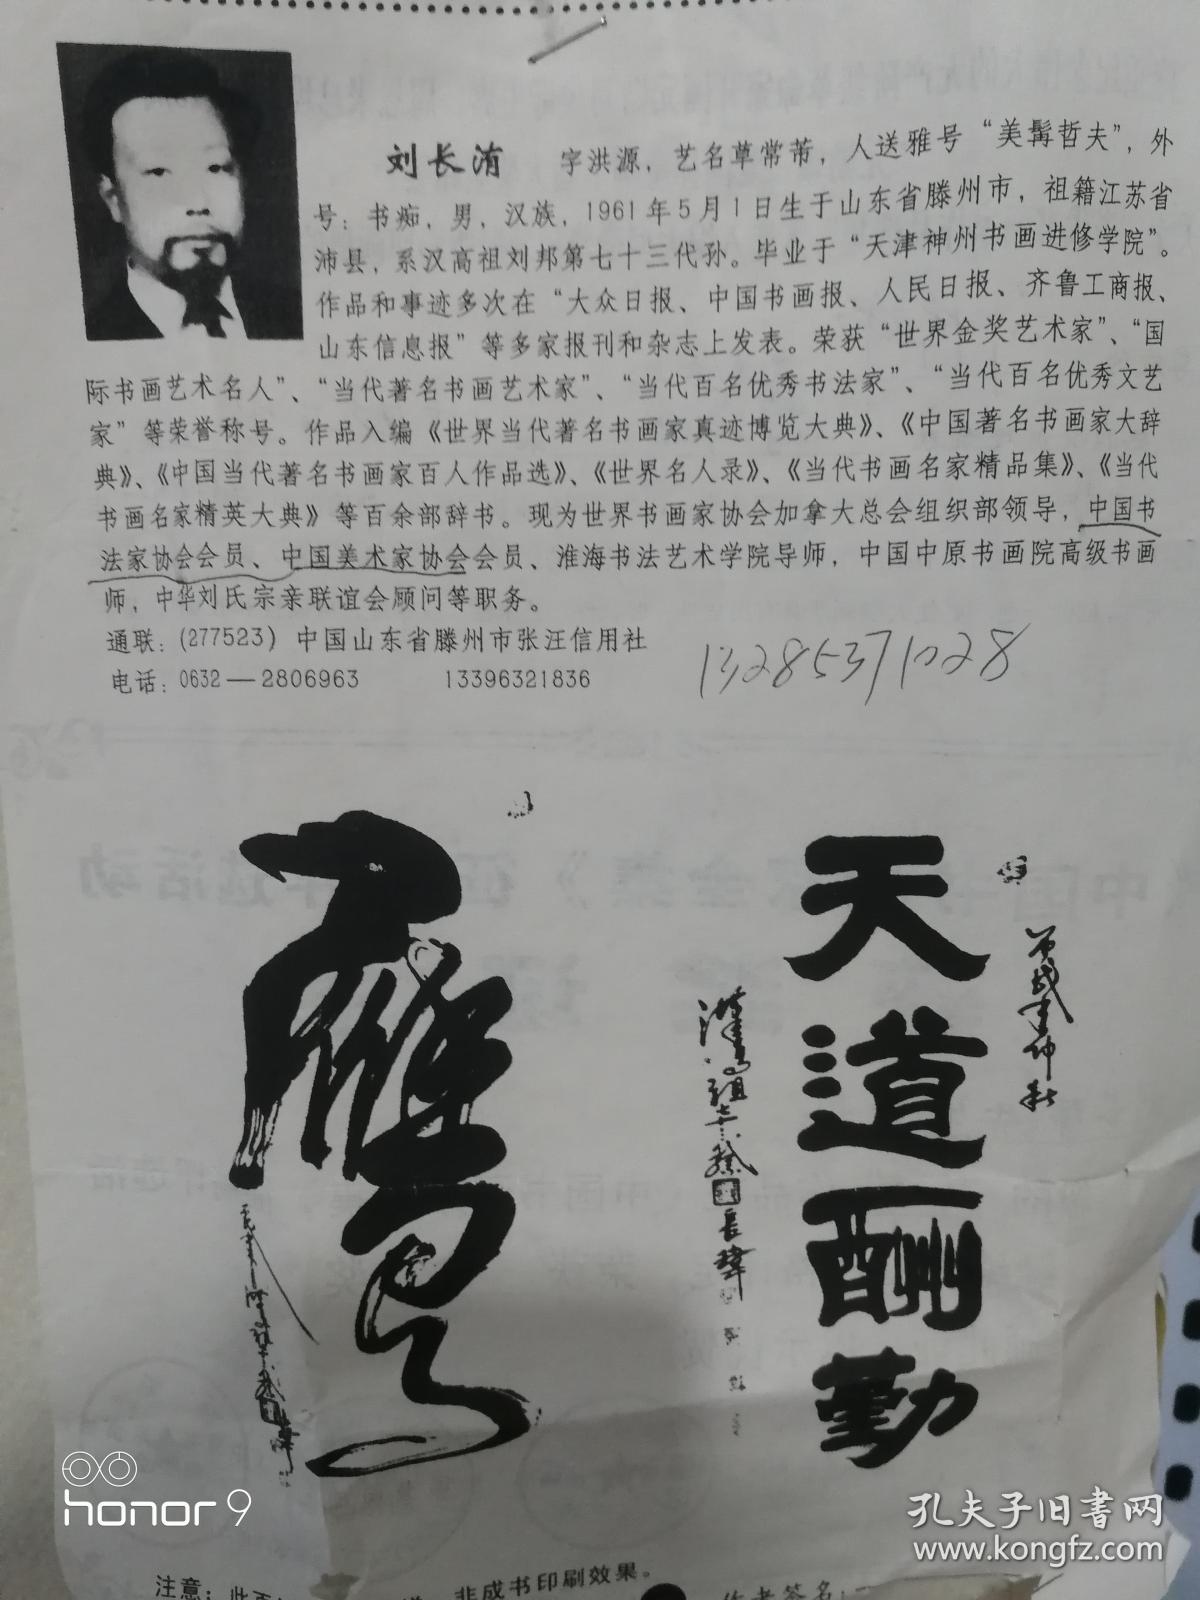 刘长洧 字洪源，艺名草常芾，人送雅号“美髯哲夫”，外
号：书痴，男，汉族，1961年5月1日生于山东省滕州市，祖籍江苏省
沛县，系汉高祖刘邦第七十三代孙。毕业于“天津神州书画进修学院”。
作品和事迹多次在“大众日报、中国书画报、人民日报、齐鲁工商报、
山东信息报”等多家报刊和杂志上发表。荣获“世界金奖艺术家”、“国
际书画艺术名人”、“当代著名书画艺术家”、“当代百名优秀书法家”、“当代百名优秀文艺
家”等荣誉称号。作品入编《世界当代著名书画家真迹博览大典》、《中国著名书画家大辞
典》、《中国当代著名书画家百人作品选》、《世界名人录》、《当代书画名家精品集》、《当代
书画名家精英大典》等百余部辞书。现为世界书画家协会加拿大总会组织部领导，中国书
法家协会会员、中国美术家协会会员、淮海书法艺术学院导师，中国中原书画院高级书画
师，中华刘氏宗亲联谊会顾问等职务。
通联：(277523) 中国山东省滕州市张汪信用社
电话：0632—2806963 13396321836
13285371028
天道酬勤
鹰
注意：此页
非成书印刷效果。
作者签名：
honor 9
孔夫子旧书网
www.kongfz.com